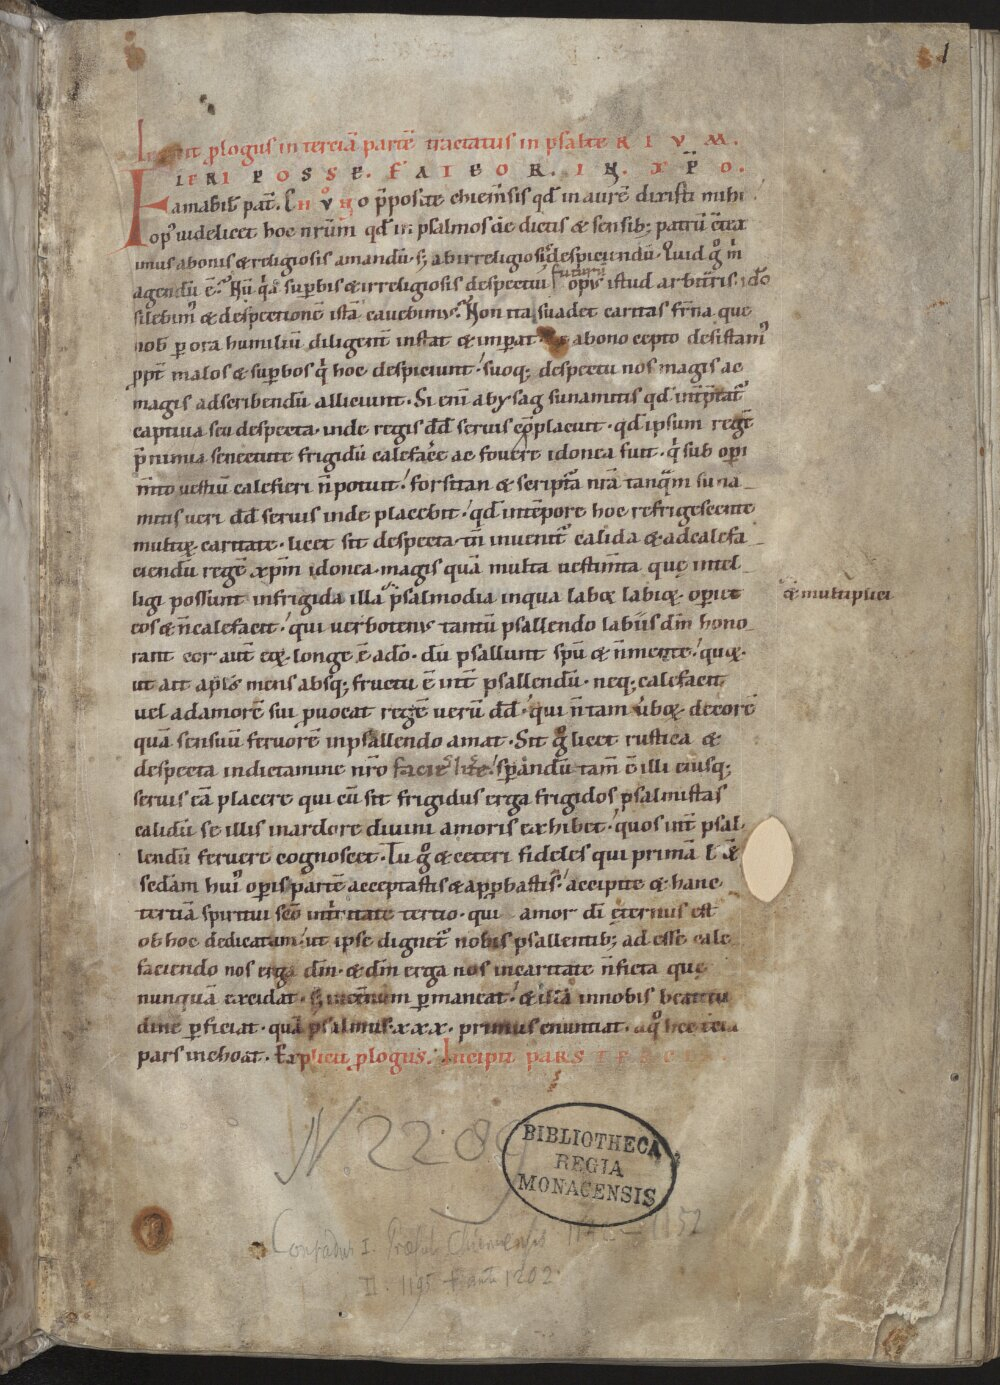 1
Incipit plogus in terciā partē tractatus in psalte RIVM.
FIERI POSSE. FATEOR. IN. XP̄O.
amabiƚ pat̄. CHVNͦO p̄posite chiem̄sis qđ in aurē dixisti mihi
op᾽ videlicet hoc nr̄um qđ in psalmos de dictis & sensib; patrū
imus a bonis & religiosis amandū. s; ab irreligiosis despiciendū. Quid gͦ
agendū ē? Nū qͣa supbis & irreligiosis despectui futurū opus istud arbitr̄is. idō
silebim᾽ & despectionē istā cavebimus? Non ita suadet caritas fr̄na que
nob p ora humiliū diligent̄ instat & impat a bono cepto desistam᾽
ppt̄ malos & supbos qͥ hoc despiciunt. suoq; despectu nos magis ac
magis ad scribendū alliciunt. Si eni abysag sunamitis qđ int̄ptat᾽
captiva seu despecta. inde regis dđ servis cōplacuit. qđ ipsum regē
p̄ nimia senectute frigidū calefac̄e ac fovere idonea fuit. qͥ sub opi
m̄to vestiū calefieri n̄ potuit. forsitan & scriptͣa nr̄a tanqͣm suna_
mitis veri dđ servis inde placebit. qđ int̄ēpore hoc refrigescente
multoꝝ caritate. licet sit despecta. tn̄ invenit᾽ calida & ad calefa_
ciendū regē xpm̄ idonea. magis quā multa vestim̄ta que intel_
ligi possunt in frigida illa psalmodia in qua labia labioꝝ. opiet
& multiplici
eos & n̄ calefacit. qui verbotenus tantū psallendo labiis dm̄ hono_
rant cor aut̄ eoꝝ. longe ē a dō. dū psallunt spū & n̄ mente. quoꝝ.
ut ait aplus mens absq; fructu ē int̄ psallendū. neq; calefacit
vel ad amorē sui pvocat regē verū dđ. qui n̄ tam v̄boꝝ. decorē
quā sensuū fervorē in psallendo amat. Sit gͦ licet rustica &
despecta in dictamine nr̄o facies litt̄e. spandū tam̄ ē illi eiusq;
servis eā placere qui cū sit frigidus erga frigidos psalmistas
calidū se illis in ardore divini amoris exhibet. quos int̄ psal.
lendū fervere cognoscet. Tu gͦ & ceteri fideles qui primā ƚ &
sedam hui᾽ opis partē acceptastis & appbastis. accipite & hanc
tertiā spiritui scō in t̄nitate tertio. qui amor dī eternus est
ob hoc dedicatam. ut ipse dignet᾽ nobis psallentib; ad esse cale
faciendo nos erga dm̄. & dm̄ erga nos in caritate n̄ ficta que
nunquā excidat. s; in et̄num pmaneat. & illā in nobis beatitu
dine pficiat. quā psalmus. xxx. primus enuntiat. a qͦ hec tcia
pars inchoat. Explicit plogus. Incipit paRS TERCIA.
N. 2289
BIBLIOTHECA
REGIA
MONACENSIS
Conradus I. Præsul Chiemensis 1152
II. 1195 1202.